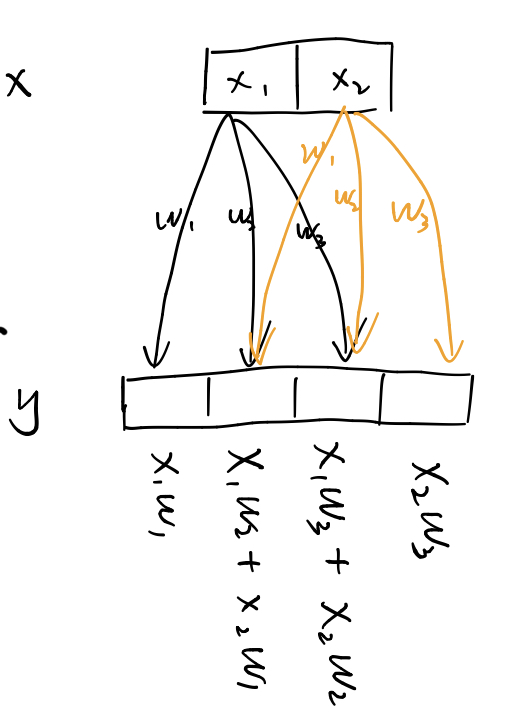 x
x₁ x₂
w₁ w₂ w₃
w₁ w₂ w₃
y
x₁w₁
x₁w₂ + x₂w₁
x₁w₃ + x₂w₂
x₂w₃